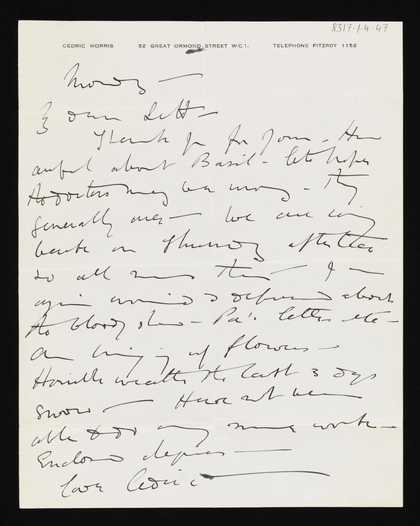 8317.1.4.47
CEDRIC MORRIS 52 GREAT ORMOND STREET W.C.1. TELEPHONE FITZROY 1152
Monday —
My dear Lett —
Thank you for yours — How
awful about Basil — lets hope
the doctors may be wrong — They
generally are — We are
back on Thursday after
so all
again about
the bloody show — Pa's letter etc —
Am of flowers —
Horrible weather the last 3 days
snow — Have not been
able to do any more work —
Enclosed
love Cedric